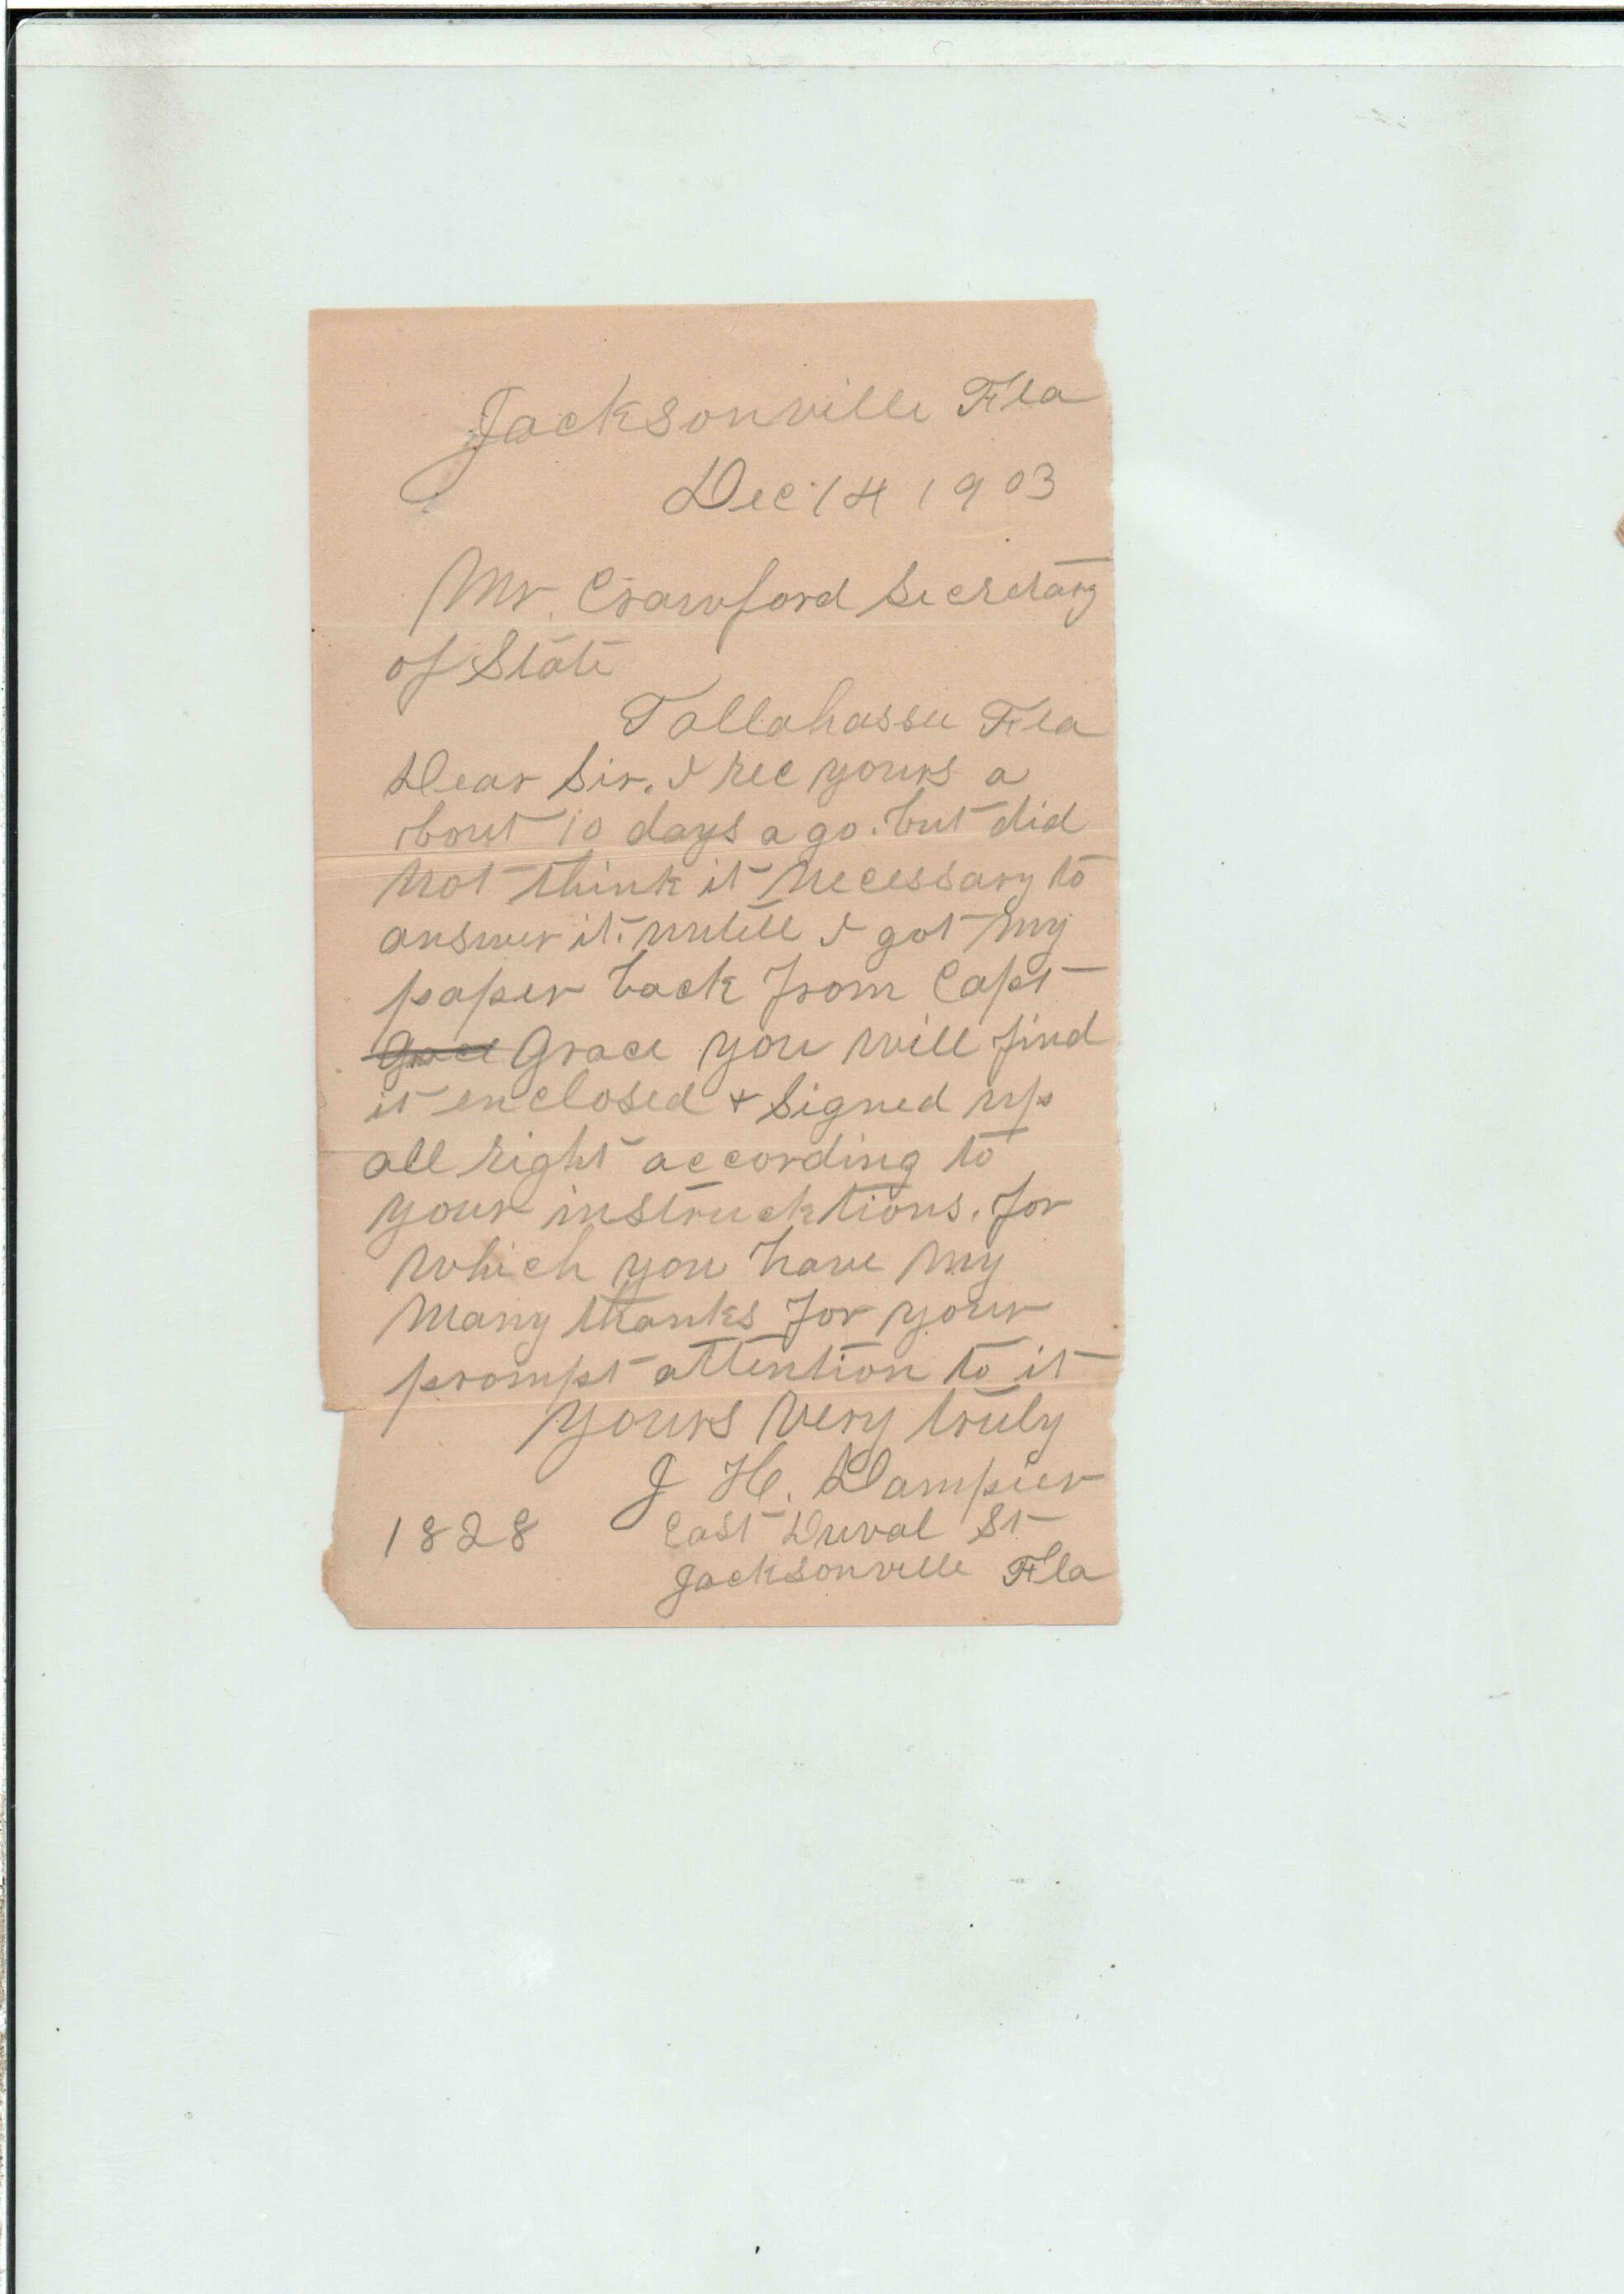 Jacksonville Fla
Dec 14 1903
Mr. Crawford Secretary
of State
Tallahassee Fla
Dear Sir. I rec yours a
bout 10 days a go. but did
not think it necessary to
answer it. untill I got my
paper back from Capt
Grace Grace you will find
it enclosed + signed up
all right according to
your instrucktions. for
which you have my
many thanks for your
prompt attention to it
yours very truly
J H. Dampier
1828 East Duval St
Jacksonville Fla